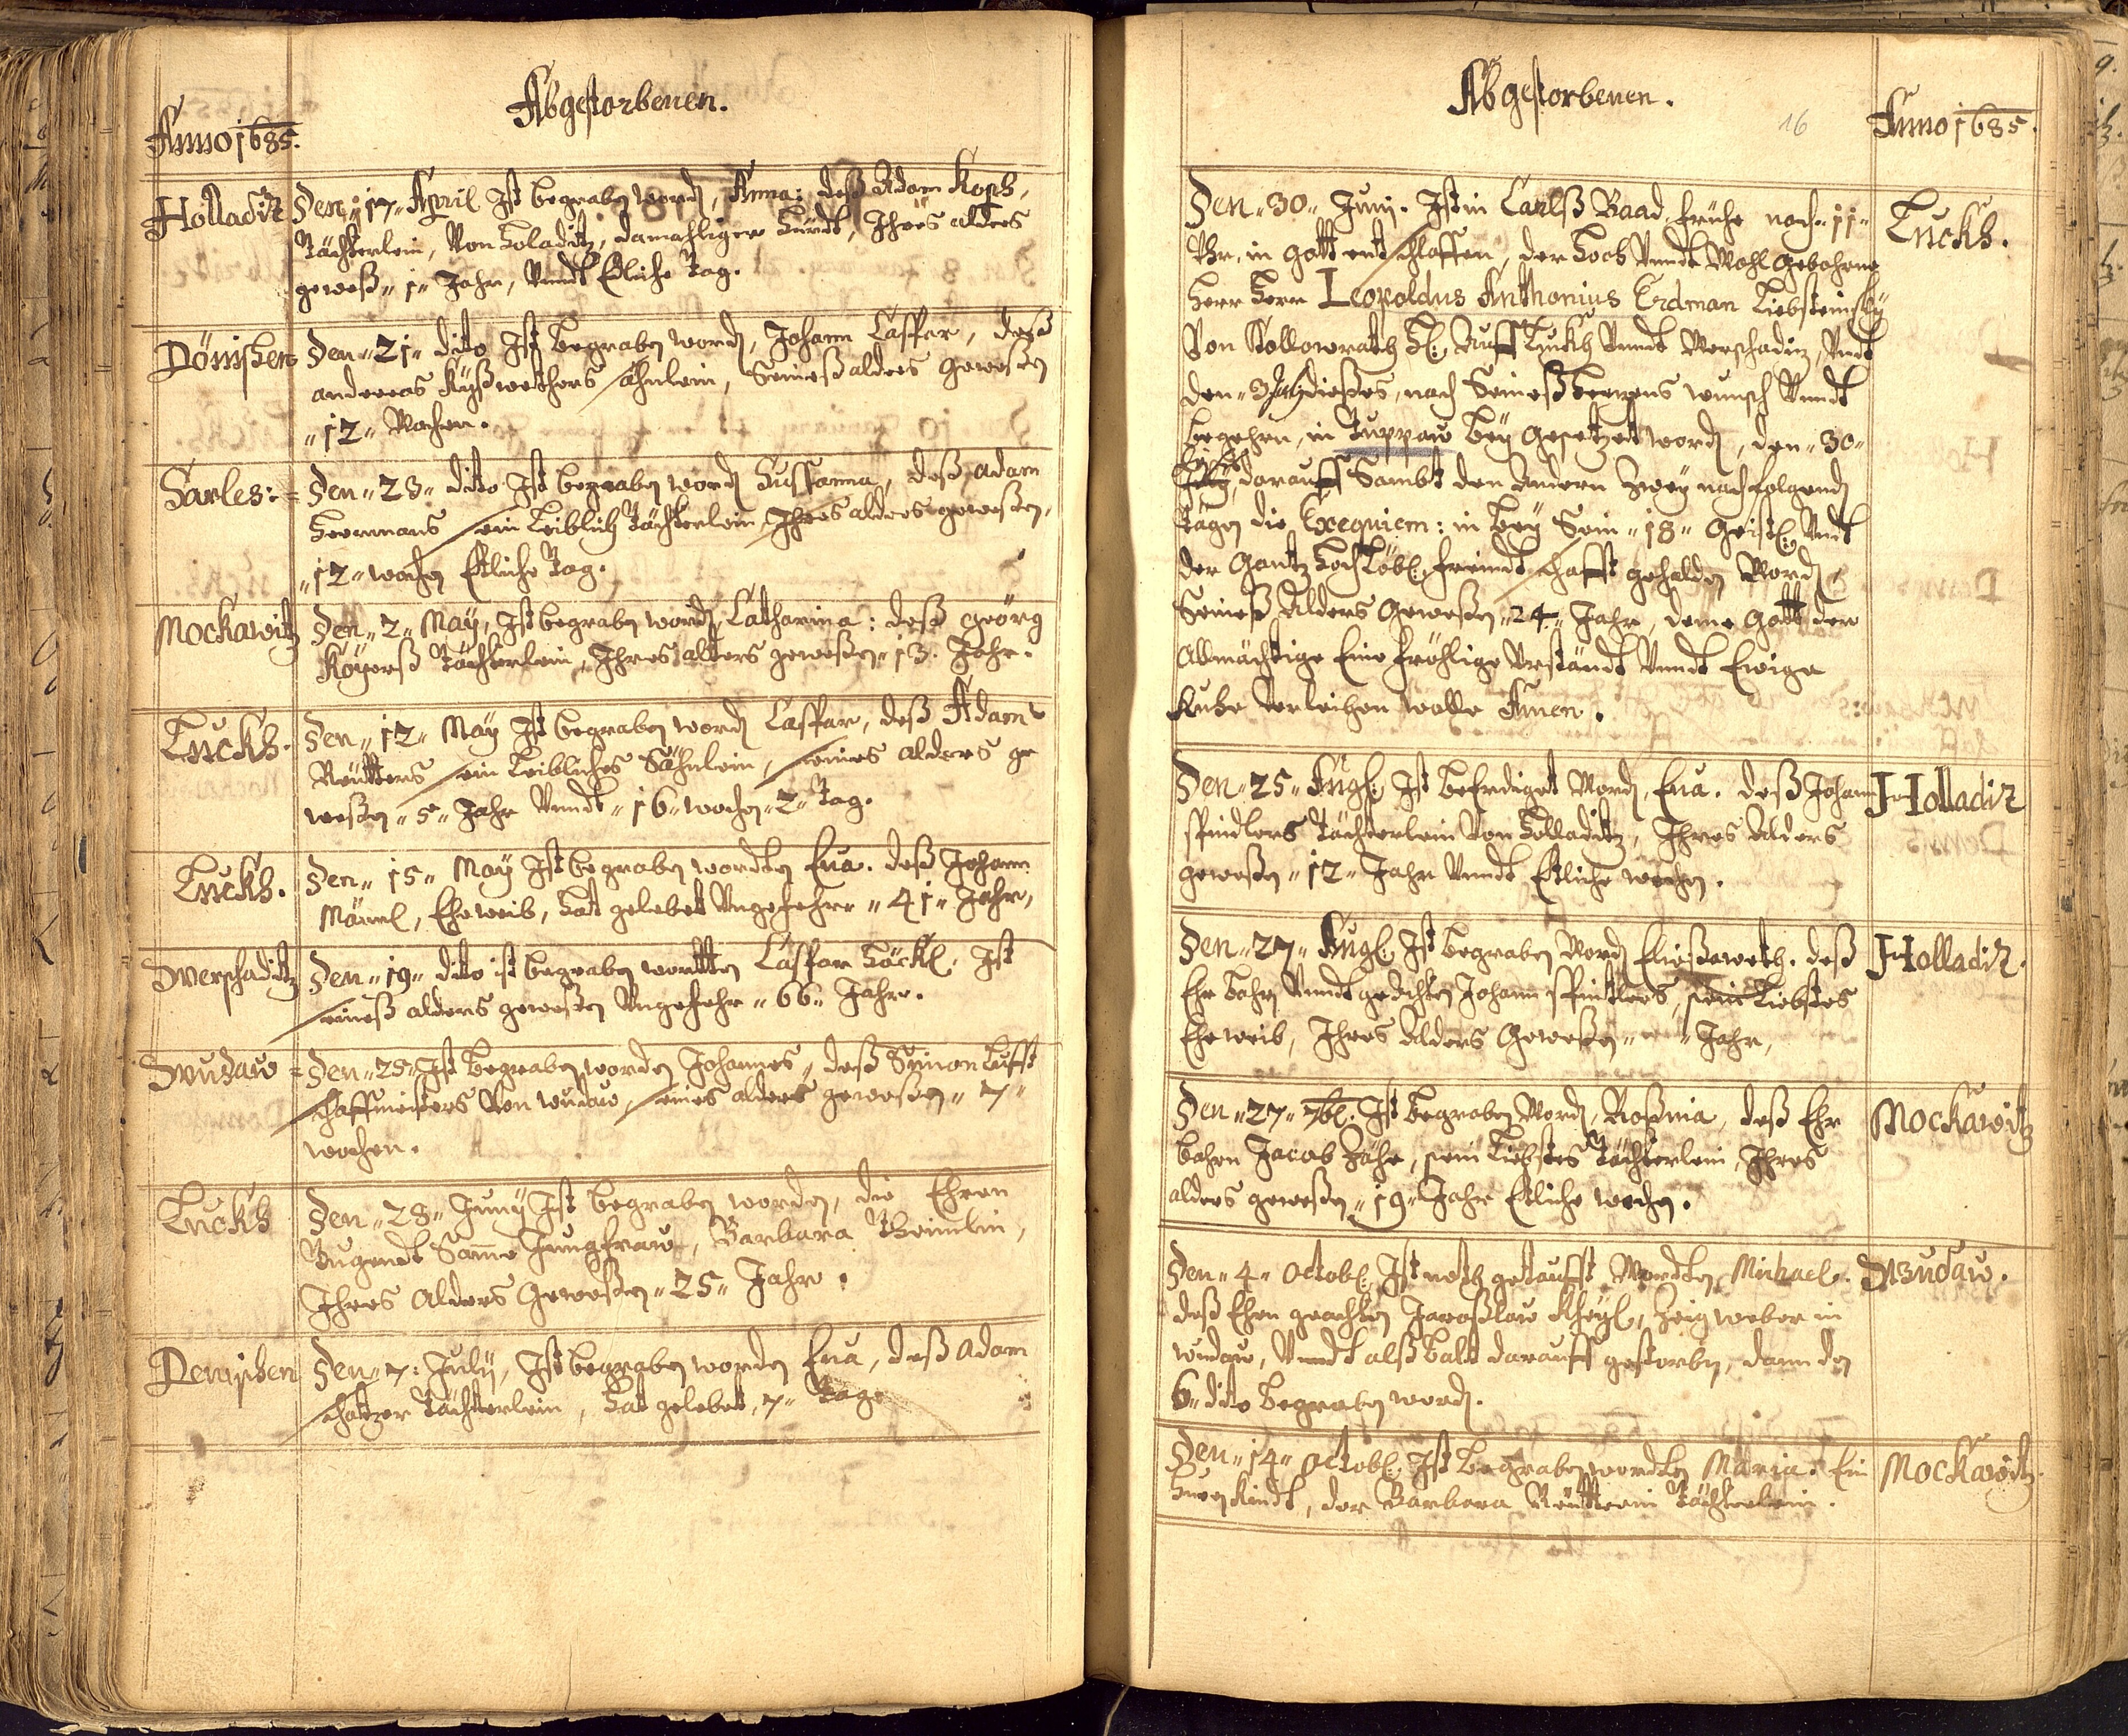 Abgestorbenen.
Anno 1685.
Holladitz
Den „17„ April Ist begraben word, Anna: deß Adam Koph,
Töchterlein, Von Holaditz, damahliger Hirdt, Ihres alders
geweß „1„ Jahr, Vnndt Etliche Tag.
Dönischen
Den „21„ dito Ist begraben word, Johann Casspar, deß
andereas Söhnlein, Seineß alders geweßen
„12„ Wochen.
Sarles:
Den „23„ dito Ist begraben word Sussanna, deß Adam
Heermans sein Leiblich Töchterlein, Ihres alders geweßen,
„12„ wochen Etliche Tag.
Mockawitz
Den „2„ May, Ist begraben word, Catharina: deß geörg
Töchterlein, Ihres alters geweßen „13. Jahr.
Luckh.
Den „12„ May Ist begraben word Casspar, deß Adam
Reütters sein Leibliches Söhnlein, seines alders ge
weßen „5„ Jahr Vnndt „16„ wochen „2„ Tag.
Luckh.
Den „15„ May Ist begraben wordten Eua. deß Johann
Eheweib, hat gelebet Vngefehr „41„ Jahr,
Dwerschaditz
Den „19„ dito ist begraben wortten Casspar Ist
seineß alders geweßen Vngefehr „66„ Jahr.
Den „25„ Ist begraben worden Johannes, deß Simon Lufft
schaffmeisters Von wudaw, seines alders geweßen „7„
wochen.
Luckh
Den „28„ Juny Ist begraben worden, die Ehren
Tugendt Same Jungfraw, Barbara
Ihres Alders Geweßen „25„ Jahr.
Denischen
Den „7: July, Ist begraben worden Eua, deß Adam
Töchterlein, hat gelebet „7„ Tage
Abgestorbenen.
16
Anno 1685.
Den „30„ Juny. Ist in Carlß Baad frühe nach „11„
Vhr, in Gott entschlaffen, der Hoch Vnndt Wohl Gebohrne
Herr Herr Leopoldus Anthonius Erdman Liebsteinsky
Von Kollowrath H: Auff Luckh Vnndt Werschaditz, Vndt
den „3 July dießes, nach Seineß Herrens wunsch Vnndt
begehrn, in Duppaw bey Gesetzet word, den „30„
darauff Sambt den andern Zwey nachfolgend
tagen die Exequiem: in bey Sein „18„ Geistl: Vndt
der Gantz Hochlöbl: freindtschafft gehalden Word,
Seineß Alders Geweßen „24„ Jahr, deme Gott der
Allmächtige Eine fröhlige Vrständt Vnndt Ewige
Ruhe Verleihen wolle Amen.
Luckh.
Den „25„ Augl: Ist beerdiget Word, Eua. deß Johann
Spindlers Töchterlein Von Holladitz, Ihres Alders
geweßen „12„ Jahr Vnndt Etliche wochen.
Holladitz
Den „27„ Augl: Ist begraben Word Elisßaweth. deß
Ehr bahrn Vnndt geachten Johann Spintlers, sein Liebstes
Eheweib, Ihres Alders Geweßen „ „ Jahr,
Holladitz.
Den „27„ 7bl. Ist begraben Word, Roßinia, deß Ehr
bahrn Jacob sein Liebstes Töchterlein, Ihres
alders geweßen „19„ Jahr Etliche wochen.
Mockawitz
Den „4„ Octobl: Ist noth getaufft Wordten, Michael.
deß Ehrn geachten Jaroßlaw Zeigweber in
wudaw, Vnndt alß balt darauff gestorben, dann den
6„ dito begraben word.
Den „14„ Octobl: Ist begraben wordten Maria. Ein
Hurn Kindt, der Barbara Reütterin Töchterlein.
Mockawitz.